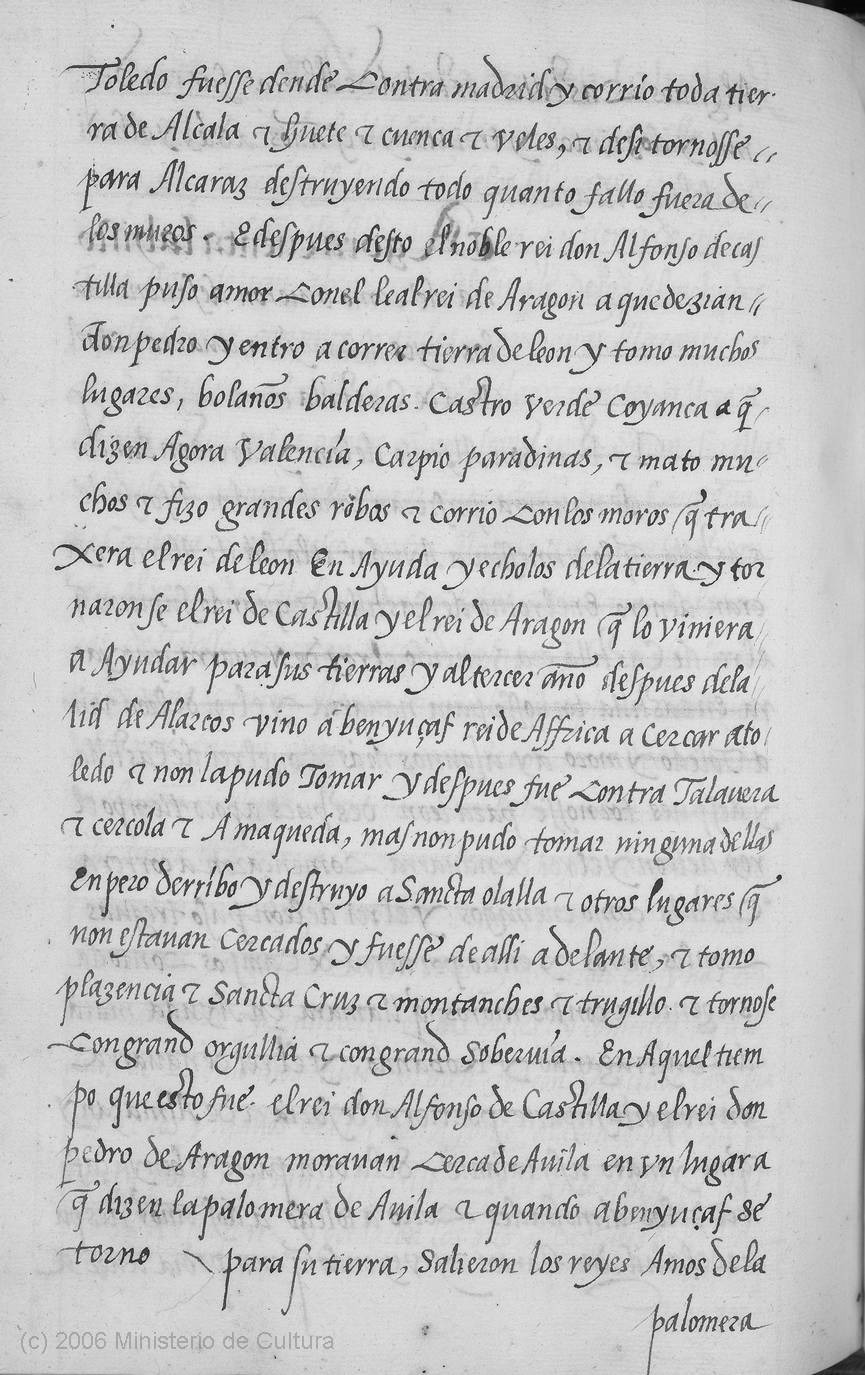 Toledo fuesse dende Contra madrid y corrio toda tier-
ra de Alcala & huete & cuenca & veles, & desi tornosse
para Alcaraz destruyendo todo quanto fallo fuera de
los muros. E despues desto el noble rei don Alfonso de cas
tilla puso amor Con el leal rei de Aragon a que dezian
don pedro y entro a correr tierra de leon y tomo muchos
lugares, bolaños balderas. Castro verde Coyanca a q̃
dizen Agora Valencia, Carpio paradinas, & mato mu
chos & fizo grandes robos & corrio Con los moros q̃ tra
xera el rei de leon En Ayuda y echolos de la tierra y tor
naron se el rei de Castilla y el rei de Aragon q̃ lo viniera
a Ayudar para sus tierras y al tercer año despues de la
lid de Alarcos vino abenyuçaf rei de Affrica a Cercar a to
ledo & non la pudo Tomar y despues fue Contra Talavera
& cercola & A maqueda, mas non pudo tomar ninguna dellas
En pero derribo y destruyo a Sancta olalla & otros lugares q̃
non estavan Cercados y fuesse de alli adelante, & tomo
plazencia & Sancta Cruz & montanches & trugillo. & tornose
Con grand orgullia & con grand Sobervia. En Aquel tiem
po que esto fue. el rei don Alfonso de Castilla y el rei don
pedro de Aragon moravan Cerca de Avila en vn lugar a
q̃ dizen la palomera de Avila & quando abenyuçaf se
torno para su tierra, Salieron los reyes Amos de la
palomera
(c) 2006 Ministerio de Cultura